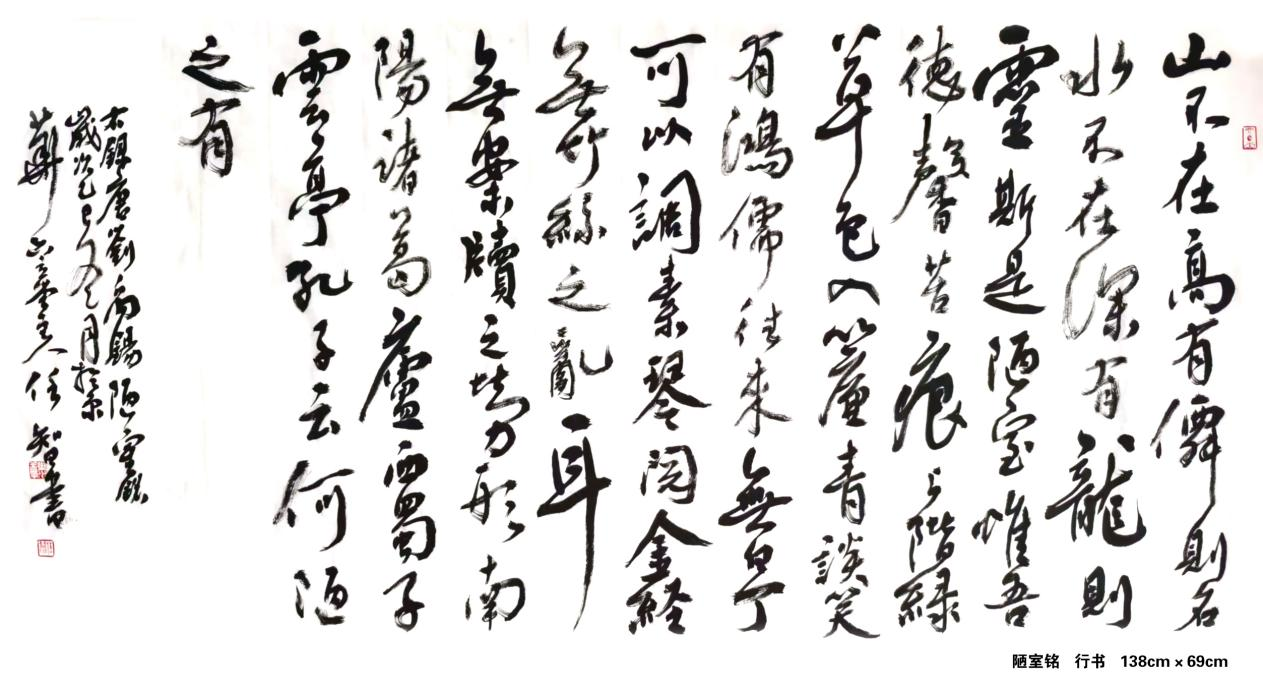 山不在高有僊則名
水不在深有龍則
靈斯是陋室惟吾
德馨苔痕上階緑
草色入簾青談笑
有鴻儒往来無白丁
可以調素琴閱金経
無竹絲之亂耳
無案牘之勞形南
陽諸葛廬西蜀子
雲亭孔子云何陋
之有
右錄唐劉禹錫陋室銘
歲次乙巳月於京
華主人任智書
陋室铭 行书 138cm × 69cm